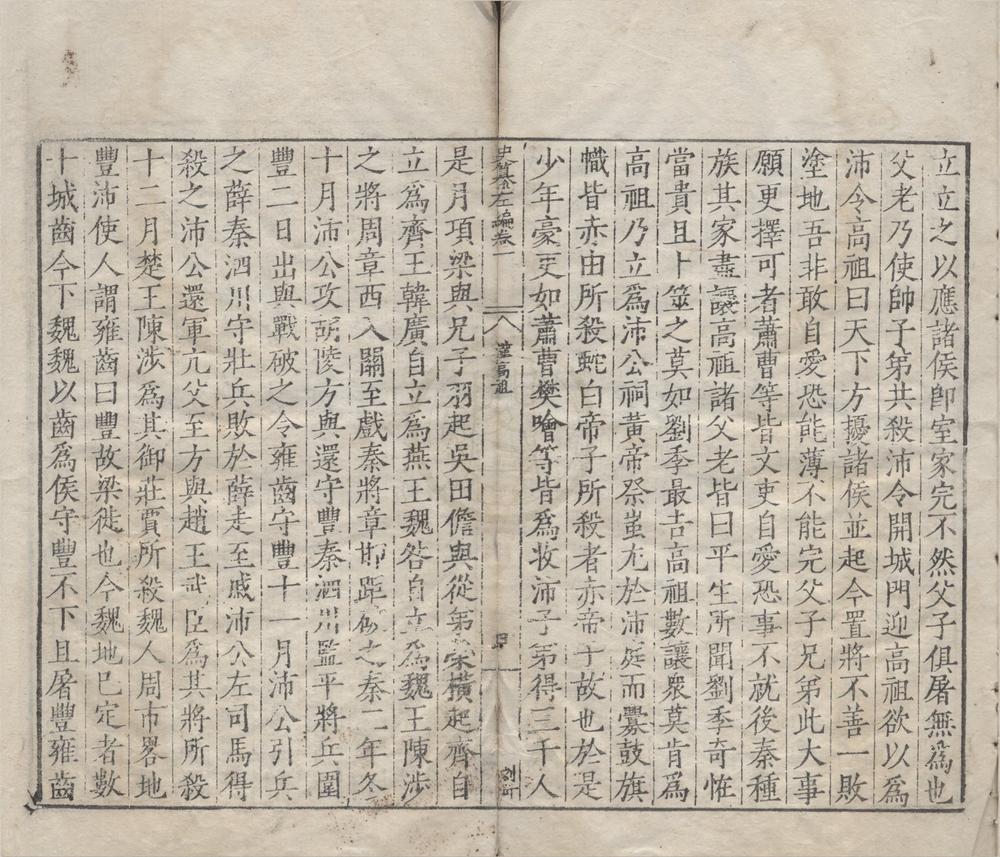 立立之以應諸侯卽室家完不然父子俱屠無爲也
父老乃使帥子弟共殺沛令開城門迎高祖欲以爲
沛令高祖曰天下方擾諸侯並起今置將不善一敗
塗地吾非敢自愛恐能薄不能完父子兄弟此大事
願更擇可者蕭曹等皆文吏自愛恐事不就後秦種
族其家盡讓高祖諸父老皆曰平生所聞劉季奇恠
當貴且卜筮之莫如劉季最吉高祖數讓衆莫肯爲
高祖乃立爲沛公祠黃帝祭蚩尤於沛庭而釁鼓旗
幟皆赤由所殺蛇白帝子所殺者赤帝子故也於是
少年豪吏如蕭曹樊噲等皆爲收沛子弟得三千人
史纂左編卷一
八
漢高祖
是月項梁與兄子羽起吳田儋與從弟榮橫起齊自
立爲齊王韓廣自立爲燕王魏咎自立爲魏王陳涉
之將周章西入關至戲秦將章邯距破之秦二年冬
十月沛公攻胡陵方與還守豐秦泗川監平將兵圍
豐二日出與戰破之令雍齒守豐十一月沛公引兵
之薛秦泗川守壯兵敗於薛走至戚沛公左司馬得
殺之沛公還軍亢父至方與趙王武臣爲其將所殺
十二月楚王陳涉爲其御莊賈所殺魏人周市畧地
豐沛使人謂雍齒曰豐故梁徙也今魏地已定者數
十城齒今下魏魏以齒爲侯守豐不下且屠豐雍齒